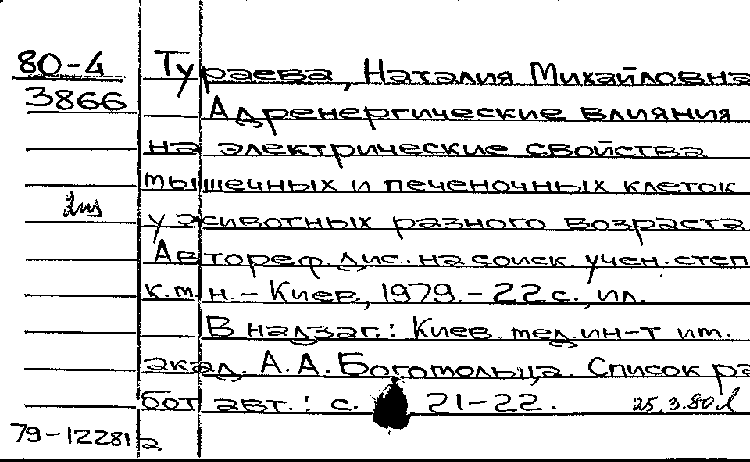 80-4 Тураева, Наталия Михайловна
3866 Адренергические влияния
на электрические свойства
мышечных и печеночных клеток
у животных разного возраста
Автореф. дис. на соиск. учен. степ
к.м.н. - Киев, 1979. - 22 с., ил.
В надзаг.: Киев. мед. ин-т им.
акад. А. А. Богомольца. Список ра
бот авт.: с. 21-22. 25.3.80
79-12281а